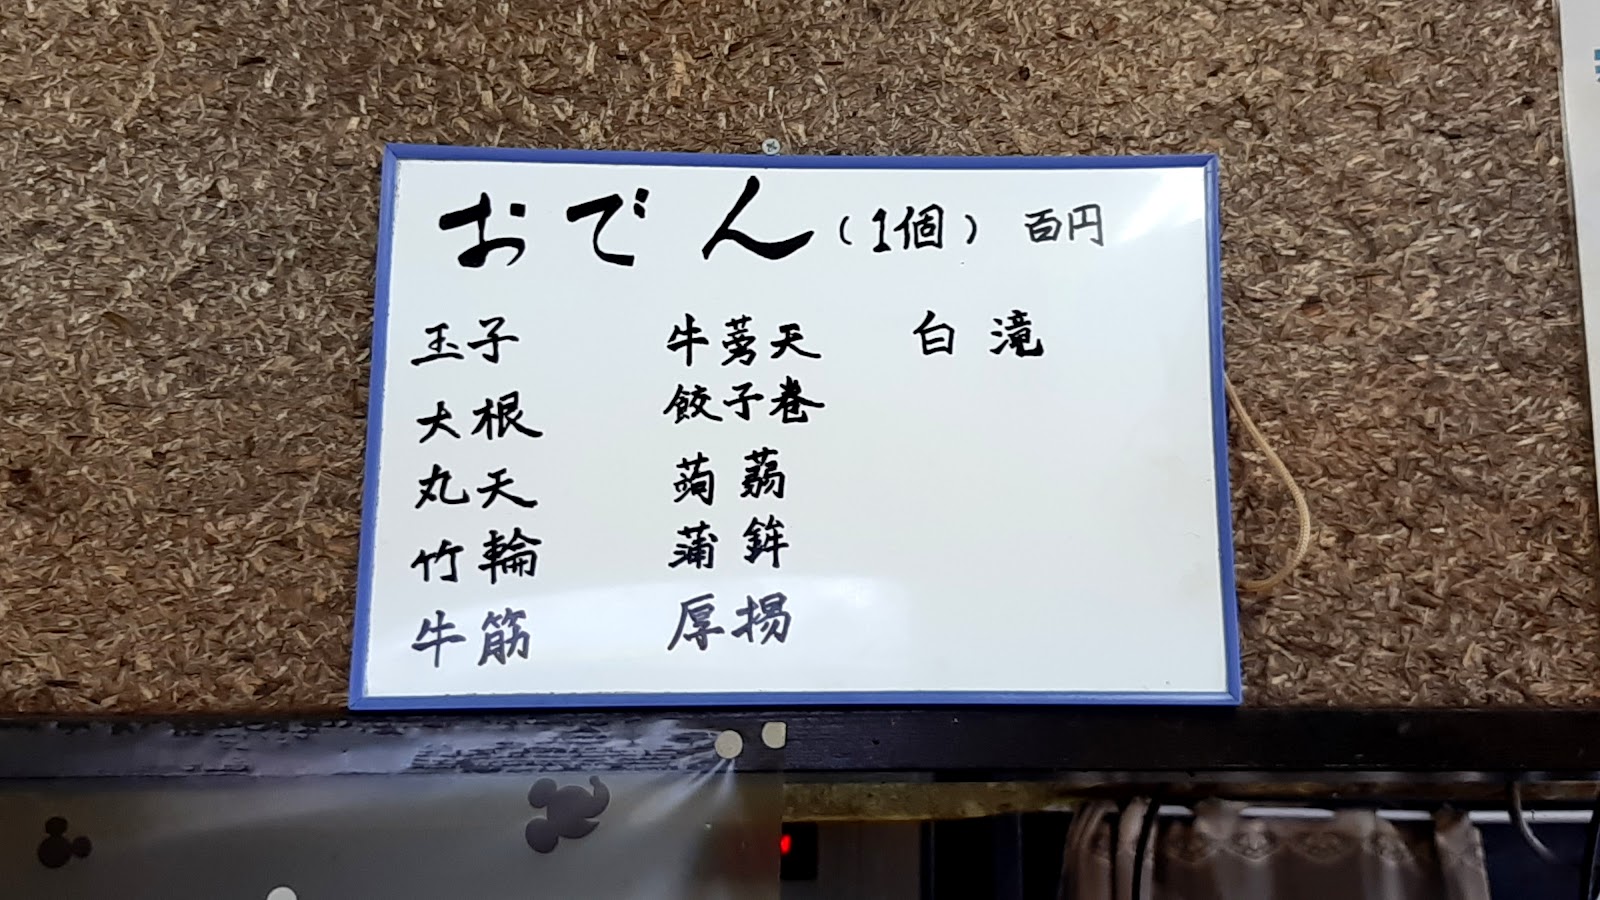 おでん（1個） 百円
玉子
大根
丸天
竹輪
牛筋
牛蒡天
餃子巻
蒟蒻
蒲鉾
厚揚
白滝